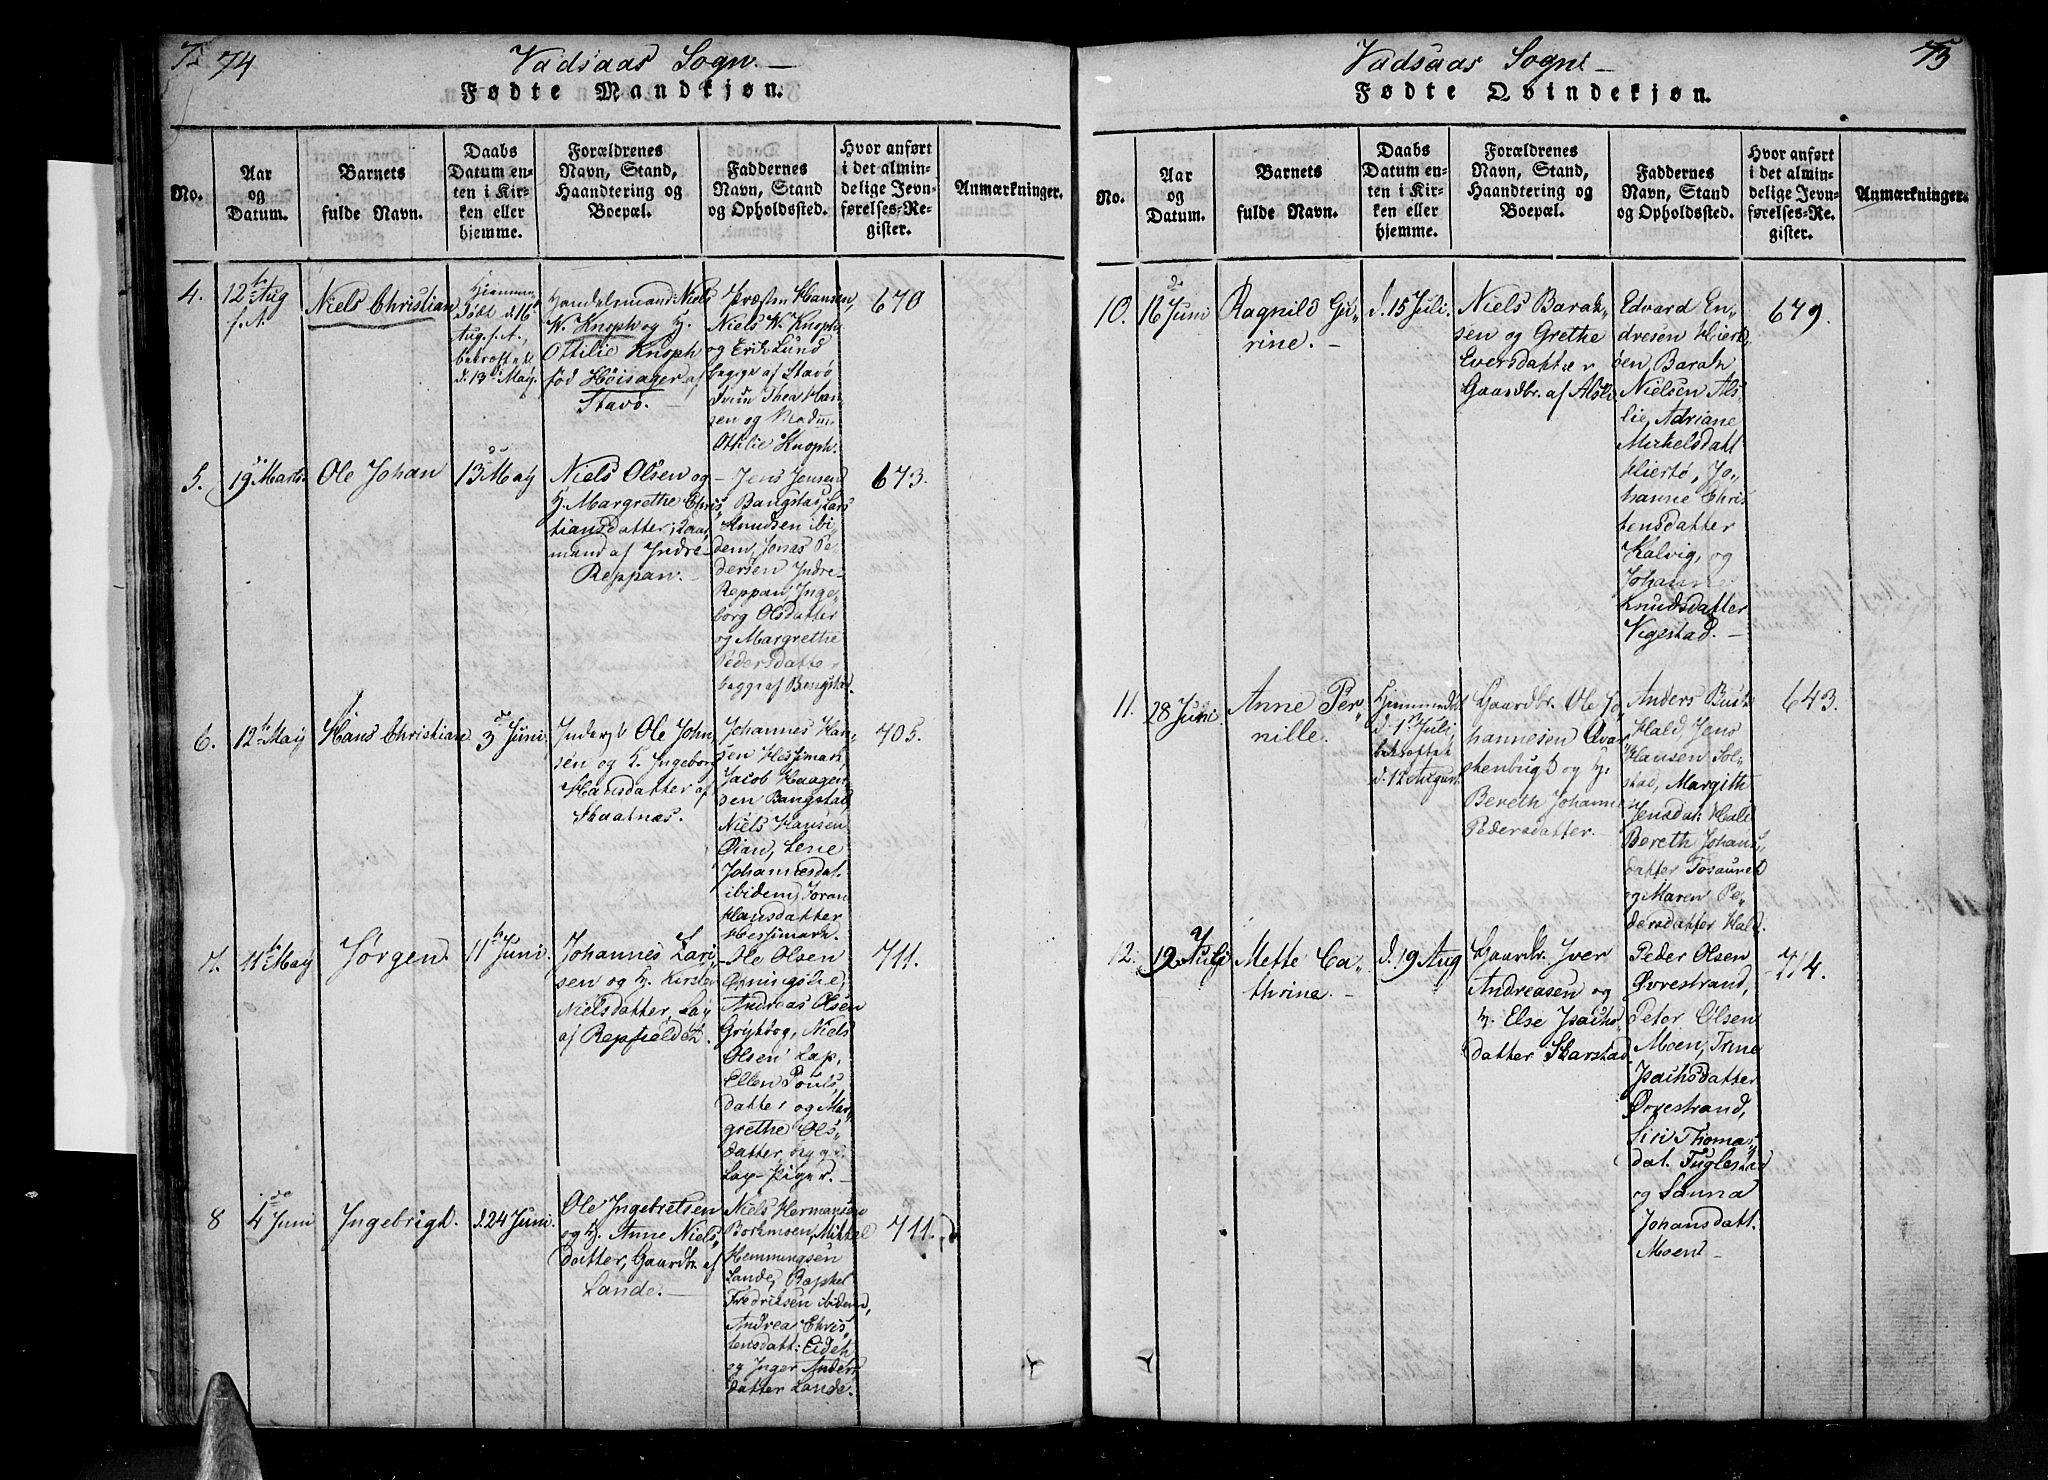 74
Vadsaas Sogn.
Fødte Mandkjøn.
No.
Aar
og
Datum.
Barnets
fulde Navn.
Daabs
Datum en-
ten i Kir-
ken eller
hjemme.
Forældrenes
Navn, Stand,
Haandtering og
Boepæl.
Faddernes
Navn, Stand
og Opholdssted.
Hvor anført
i det almin-
delige Jevn-
førelses-Re-
gister.
Anmærkninger.
4.
12te Aug
f. A.
Niels Christian
Hiemme
døbt d. 16de
Aug. f. A.,
betroftet
d. 13de May.
Handelsmand Niels
W. Knoph og H.
Ottilie Knoph
fød Høisager af
Stavø.
Præsten Hansen,
Niels W. Knoph
og Erik Lund
begge af Stavø
Thea Han
sen og Madm
Ottilie Knoph.
670
5.
19de Marts.
Ole Johan
13de May
Niels Olsen og
H. Margrethe Chris
tiansdatter,
mand af Indre
Reppan.
Jens Jensen
Bangstad, Lars
Knudsen ibi
dem, Jonas Pe
dersen Indre
Reppan, Inge
borg Olsdatter
og Margrethe
Pedersdatter
begge af Bengstad.
673.
6.
12te May
Hans Christian
3de Juni.
Inderst Ole John
sen og K. Ingeborg
Hansdatter af
Skaatnas.
Johannes Han
sen Hessmark,
Jacob Haagen
sen Bangstad
Niels Hansen
Øian, Lene
Johannesdat.
ibidem, Joran
Hansdatter
Hessmark.
705.
7.
11te May
Jørgen.
11te Juni.
Johannes Lari
sen og H. Kirsten
Nielsdatter, Lap
af Repfielden.
Ole Olsen
Andreas Olsen
Grytborg, Niels
Olsen Lap,
Ellen Pouls
datter og Mar
grethe Ols
datter, begge
Lap-Piger.
711.
8
4de Juni
Ingebrigt.
d. 24 Juni.
Ole Ingebretsen
og H. Anne Niels
datter, Gaardbr. af
Lande.
Niels Hermansen
Borkmoen, Mikkel
Hemmingsen
Lande, Raphel
Fredriksen ibidem,
Andrea Chris
tensdatt: Eideh
og Inger Anders
datter Lande.
711.
Vadsaas Sogn
75
Fødte Qvindekjøn.
No.
Aar
og
Datum.
Barnets
fulde Navn.
Daabs
Datum en-
ten i Kir-
ken eller
hjemme.
Forældrenes
Navn, Stand,
Haandtering og
Boepæl.
Faddernes
Navn, Stand
og Opholdssted.
Hvor anført
i det almin-
delige Jevn-
førelses-Re-
gister.
Anmærkninger.
10.
16de Juni
Ragnild Gu
rine.
d. 15 Juli.
Niels Barak
sen og Grethe
Eversdatter
Gaardbr. af Alslie.
Edvard En
dresen Hiert
øen, Barak
Nielsen Als
lie, Adriane
Mickelsdatt
Hiertø, Jo
hanne Chris
tensdatter
Kalvig, og
Johanne
Knudsdatter
Vigestad.
679.
11.
28 Juni.
Anne Per
nille.
Hiemmedøbt
d. 1ste Juli
betroftet
d. 12 August.
Gaardbr. Ole Jo
hannesen
og H.
Bereth Johanne
Pedersdatter.
Anders Busk
Hald, Jens
Hansen Sol
stad, Margith
Jensdat: Hald
Bereth Johans
datter Tosaunet
og Maren Pe
dersdatter Hald.
643.
12.
12 Juli
Mette Ca
thrine.
d. 19 Aug
Gaardbr. Iver
Andreasen og
H. Else Isachs
datter Skarstad
Peder Olsen
Øvrestrand,
Peter Olsen
Moen, Trine
Isachsdatter
Øvrestrand,
Siri Thomas
dat. Fuglestad
og Sanna
Johansdatt.
Moen
714.